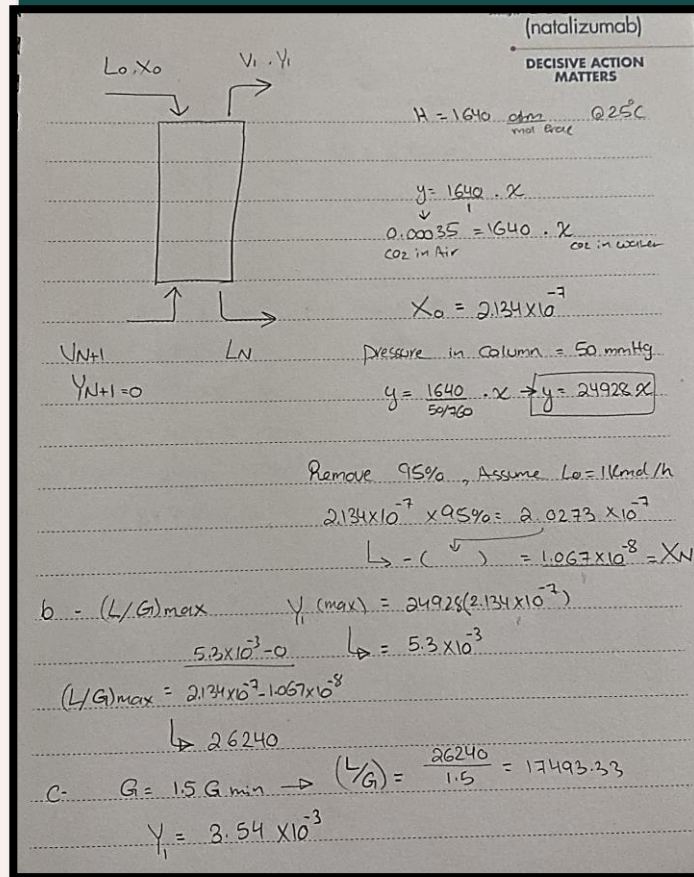 (natalizumab)
DECISIVE ACTION
MATTERS
L₀, X₀
V₁, Y₁
H = 1640 atm/mol frac @25°C
y = 1640/1 . x
0.00035 = 1640 . x
CO2 in Air
CO2 in water
X₀ = 2.134x10⁻⁷
VN+1
LN
YN+1=0
Pressure in Column = 50 mmHg
y = 1640/(50/760) . x → y = 24928 x
Remove 95%, Assume L₀ = 1 Kmol/h
2.134x10⁻⁷ x 95% = 2.0273 x10⁻⁷
↳ - ( ↓ ) = 1.067x10⁻⁸ = XN
b - (L/G)max Y₁ (max) = 24928(2.134x10⁻⁷)
↳ = 5.3x10⁻³
(L/G)max = (5.3x10⁻³-0)/(2.134x10⁻⁷-1.067x10⁻⁸)
↳ 26240
C- G = 1.5 G min → (L/G) = 26240/1.5 = 17493.33
Y₁ = 3.54 x10⁻³